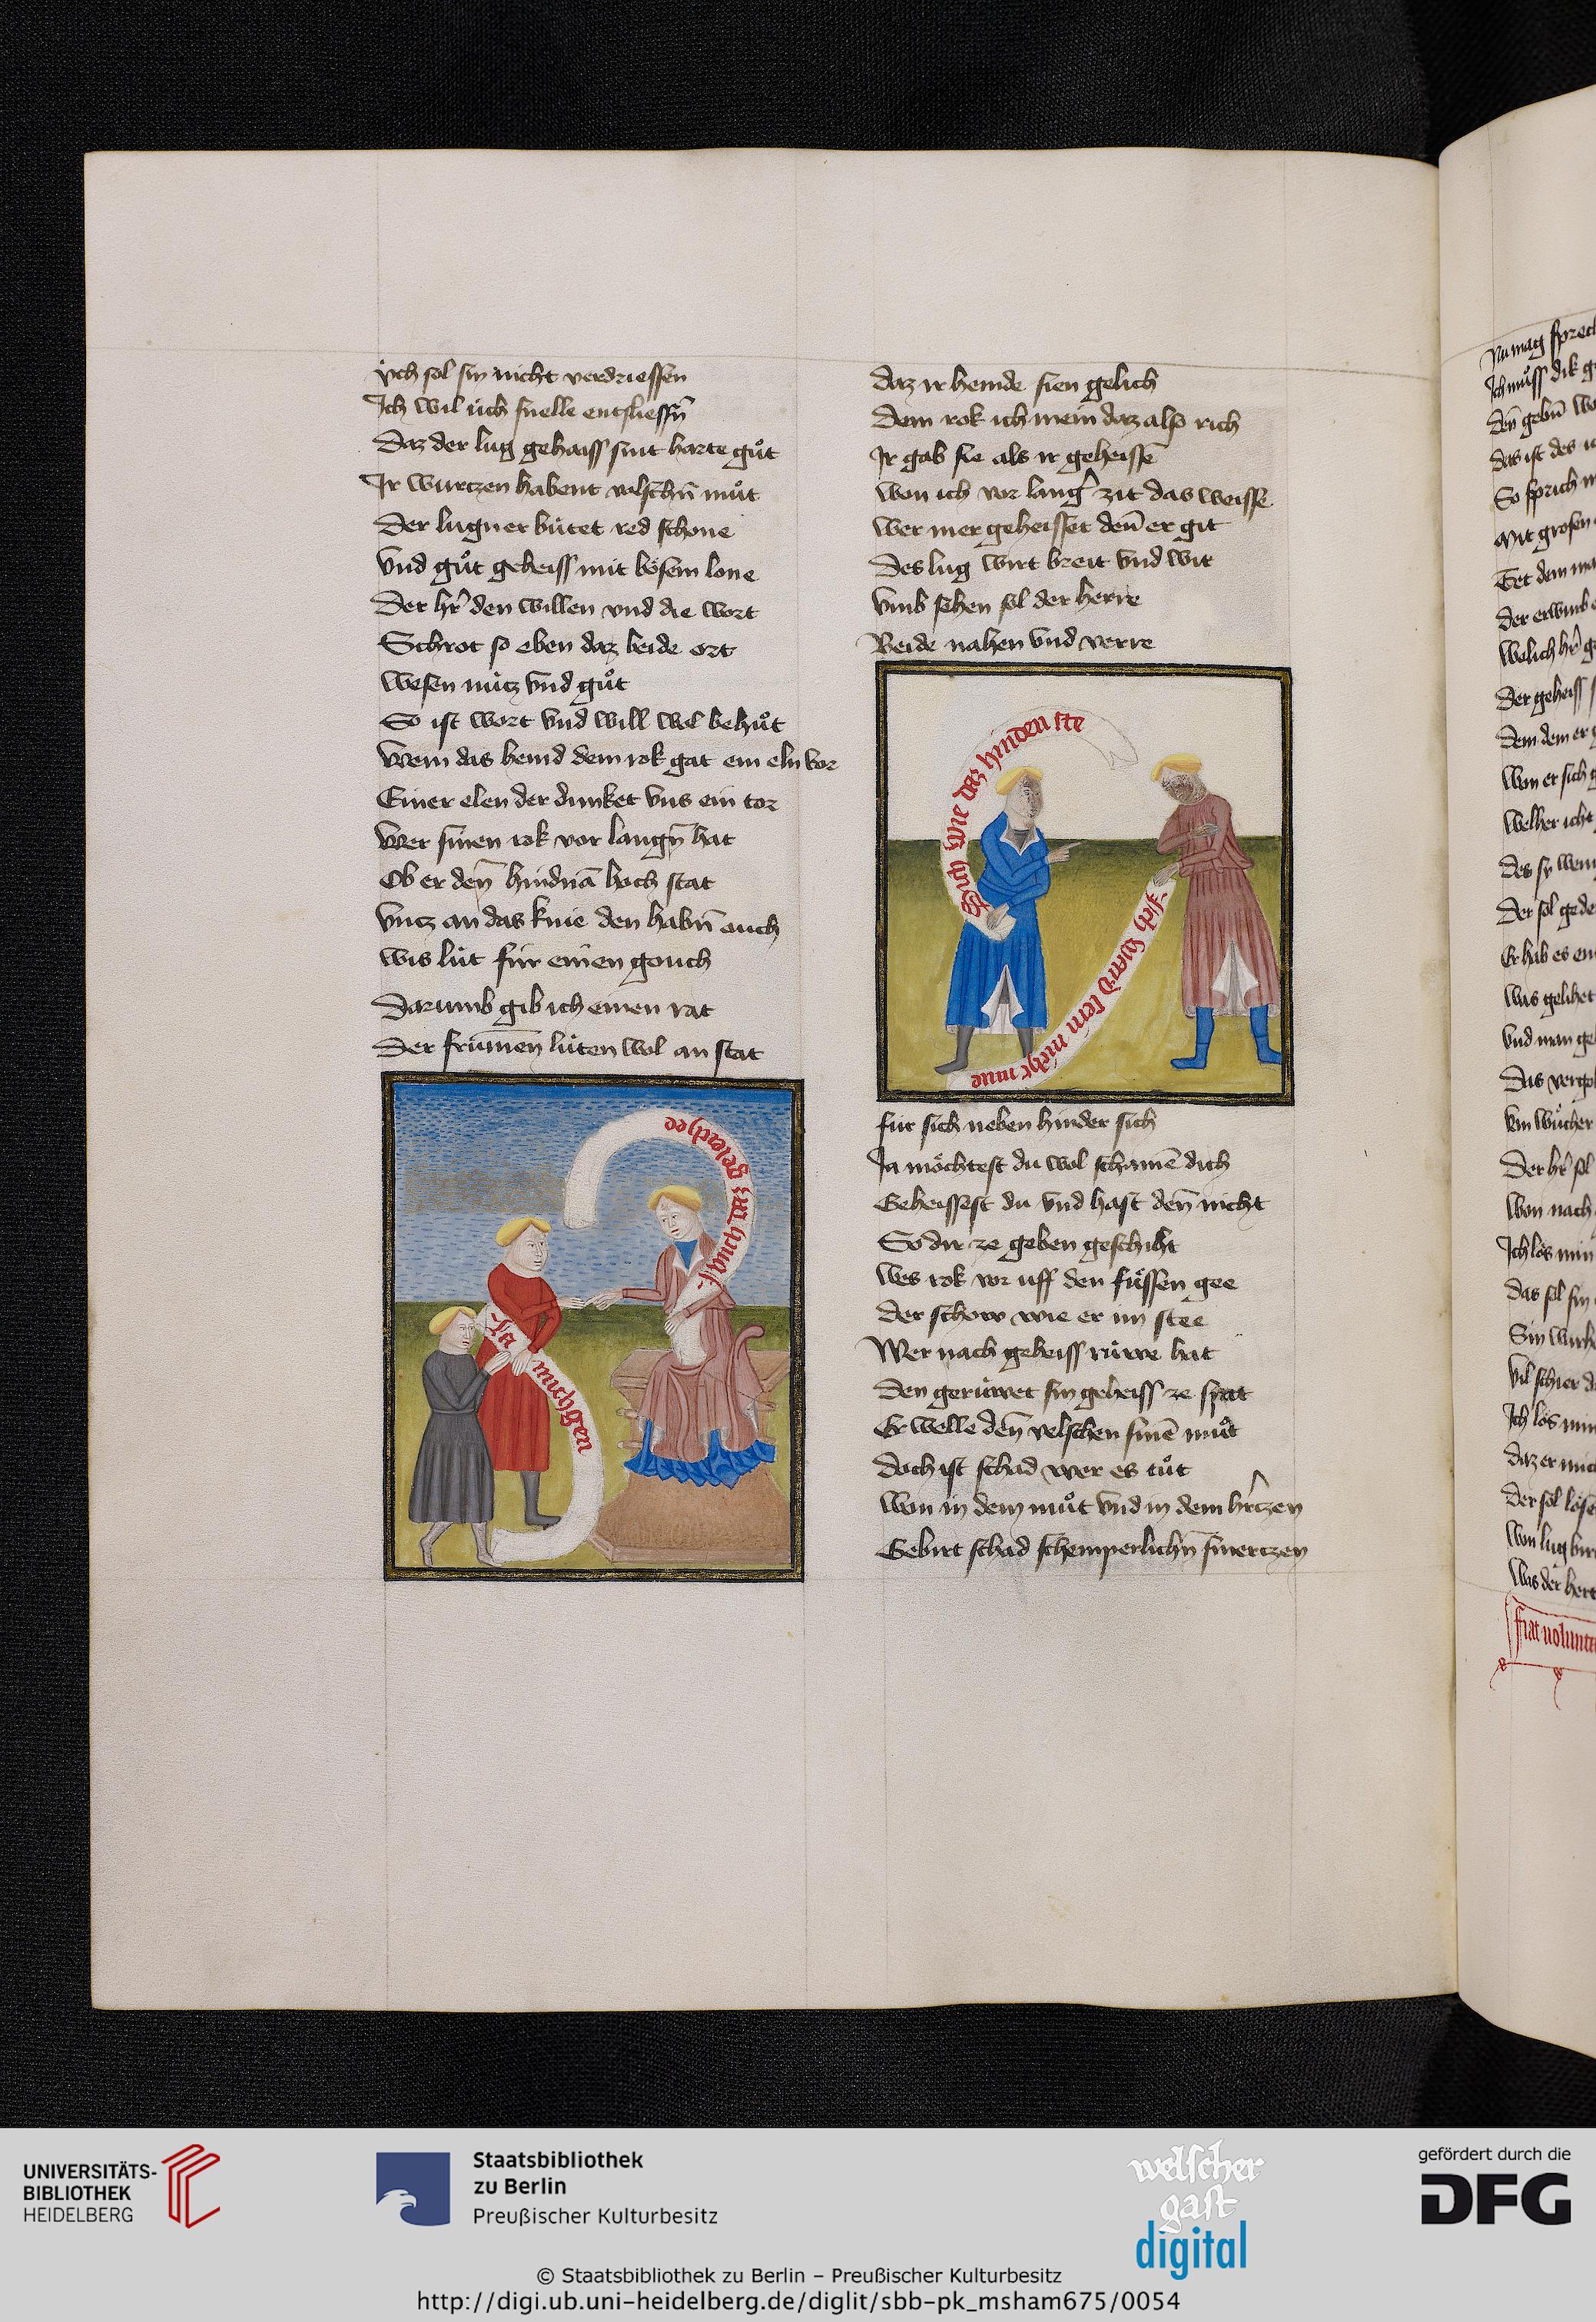 v̈ch sol sin nicht verdriessen
Ich wil üch snelle entsliessn̄
Daz der lug gehaiss sint harte gůt
Ir wurczen habent valschn̄ můt
Der lugner bütet red schone
Vnd gůt geheiss mit bösem lone
Der hr̄ den willen vnd die wort
Schrot so eben daz beide ort
Wesen nücz vnd gůt
So ist wort vnd will wel behůt
Wem das hemd dem rok gat ein eln vor
Einer elen der dunket vns ein tor
Wer sinen rok vor langn̄ hat
Ob er den̄ hindnā hoch stat
Vncz an das knie den habn̄ ouch
Wis lüt für einen gouch
Darumb gib ich einen rat
Der frümen̄ lüten wol an stat
gelerchee
La mich gen
daz ir hemde sien gelich
Dem rok ich mein daz also rich
Ir gab sie als ir geheissē
Won ich vor lanḡ zit das weisse
Wer mer geheisset den̄ er git
Des lug wirt breit vnd wit
Vmb sehen sol der herre
Beide nahen vnd verre
Sich wie daz hinden ste
Ich ward sein nicht inne
für sich neben hinder sich
Ja möchtest du wol schamē dich
Geheissest du vnd hast den̄ nicht
So dir ze geben geschiht
Wes rok vor uff den füssen gee
der schow wie er im stee
Wer nach geheiss rüwe hat
Den gerüwet sin geheiss ze spat
Er welle den̄ velschen sinē můt
doch ist schad wer es tůt
Won in dem můt vnd in dem hr̄czen
Gebirt schad schemperlichn̄ smerczen
Nu mag sprech
Ich můss dik g
den̄ gebn̄ wo
das ist des
So sprich
Mit grosen
Tet dem ma
der erwinb
Welich hr̄ g
der geheiss
Dem dem er
Won er sich
Welher icht
Des sy wen
Der sol gede
Er hab es en
Was gelihet
Vnd man ge
Das vergol
ein wůcher
Der hr̄ sol
Won nach
Ich lös min
das sol sin
Sin wurk
Vil schier
Ich lös min
daz er mic
Der sol löse
Won lug bir
Was der here
fiat uolunta
UNIVERSITÄTS-
BIBLIOTHEK
HEIDELBERG
Staatsbibliothek
zu Berlin
Preußischer Kulturbesitz
welscher
gast
digital
gefördert durch die
DFG
© Staatsbibliothek zu Berlin – Preußischer Kulturbesitz
http://digi.ub.uni-heidelberg.de/diglit/sbb-pk_msham675/0054